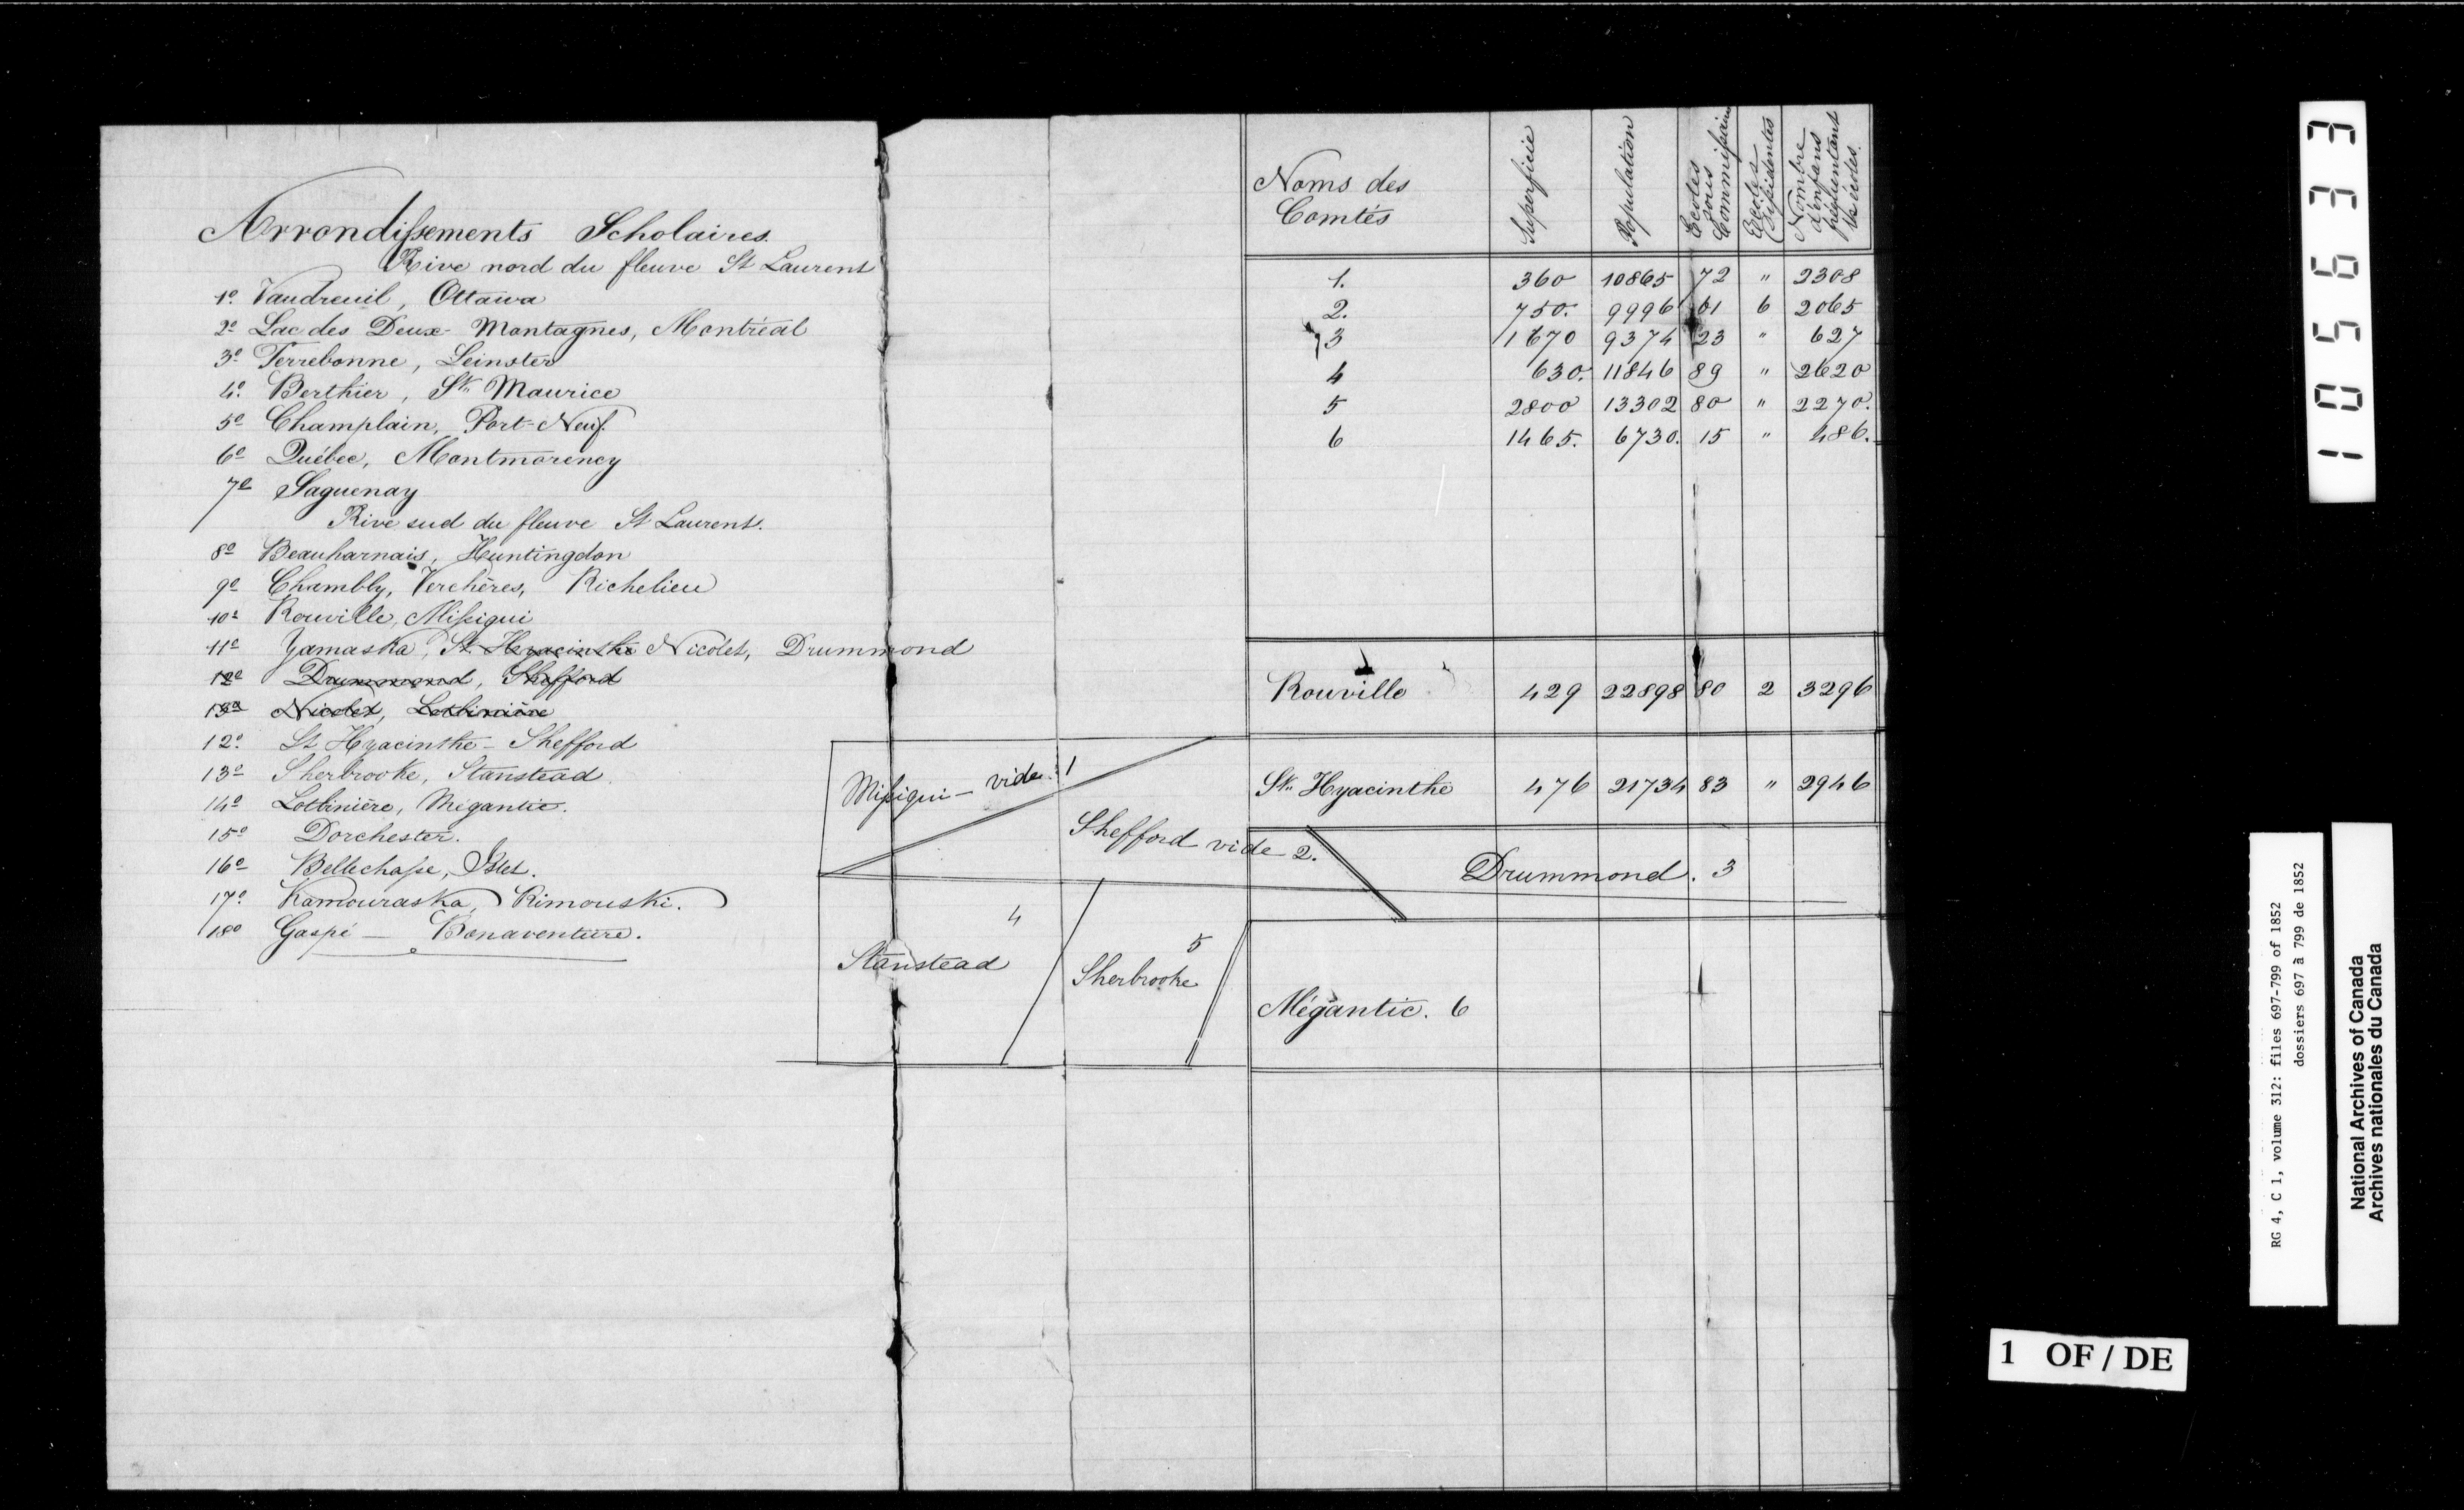 Arrondissements Scholaires.
Rive nord du fleuve St Laurent
1º. Vaudreuil, Ottawa
2º Lac des Deux-Montagnes, Montréal
3º Terrebonne, Leinster
4º. Berthier, St. Maurice
5º Champlain, Port-Neuf.
6º Québec, Montmorency
7º Saguenay
Rive sud du fleuve St Laurent.
8º Beauharnais, Huntingdon
9º Chambly, Verchères, Richelieu
10º Rouville, Missiqui
11º Yamaska, St. Hyacinthe Nicolet, Drummond
12º Drummond, Shefford
13º Nicolet, Lotbinière
12º. St Hyacinthe - Shefford
13º Sherbrooke, Stanstead
14º Lotbinière, Mégantic.
15º Dorchester.
16º Bellechasse, Islet.
17º. Kamouraska, Rimouski.
18º Gaspé — Bonaventure.
Noms des Comtés | Superficie | Population | Ecoles sous Commissaires | Ecoles Dissidentes | Nombre d'enfans fréquentant les écoles.
1. 360 10865 72 " 2308
2. 750. 9996 61 6 2065
3 1670 9374 23 " 627
4 630. 11846 89 " 2620
5 2800 13302 80 " 2270.
6 1465. 6730. 15 " 486.
Rouville 429 22898 80 2 3296
St. Hyacinthe 476 21734 83 " 2946
Missiqui - vide 1
Shefford vide 2.
Drummond. 3
Stanstead 4
Sherbrooke 5
Mégantic. 6
105633
RG 4, C 1, volume 312: files 697-799 of 1852
dossiers 697 à 799 de 1852
National Archives of Canada
Archives nationales du Canada
1 OF / DE